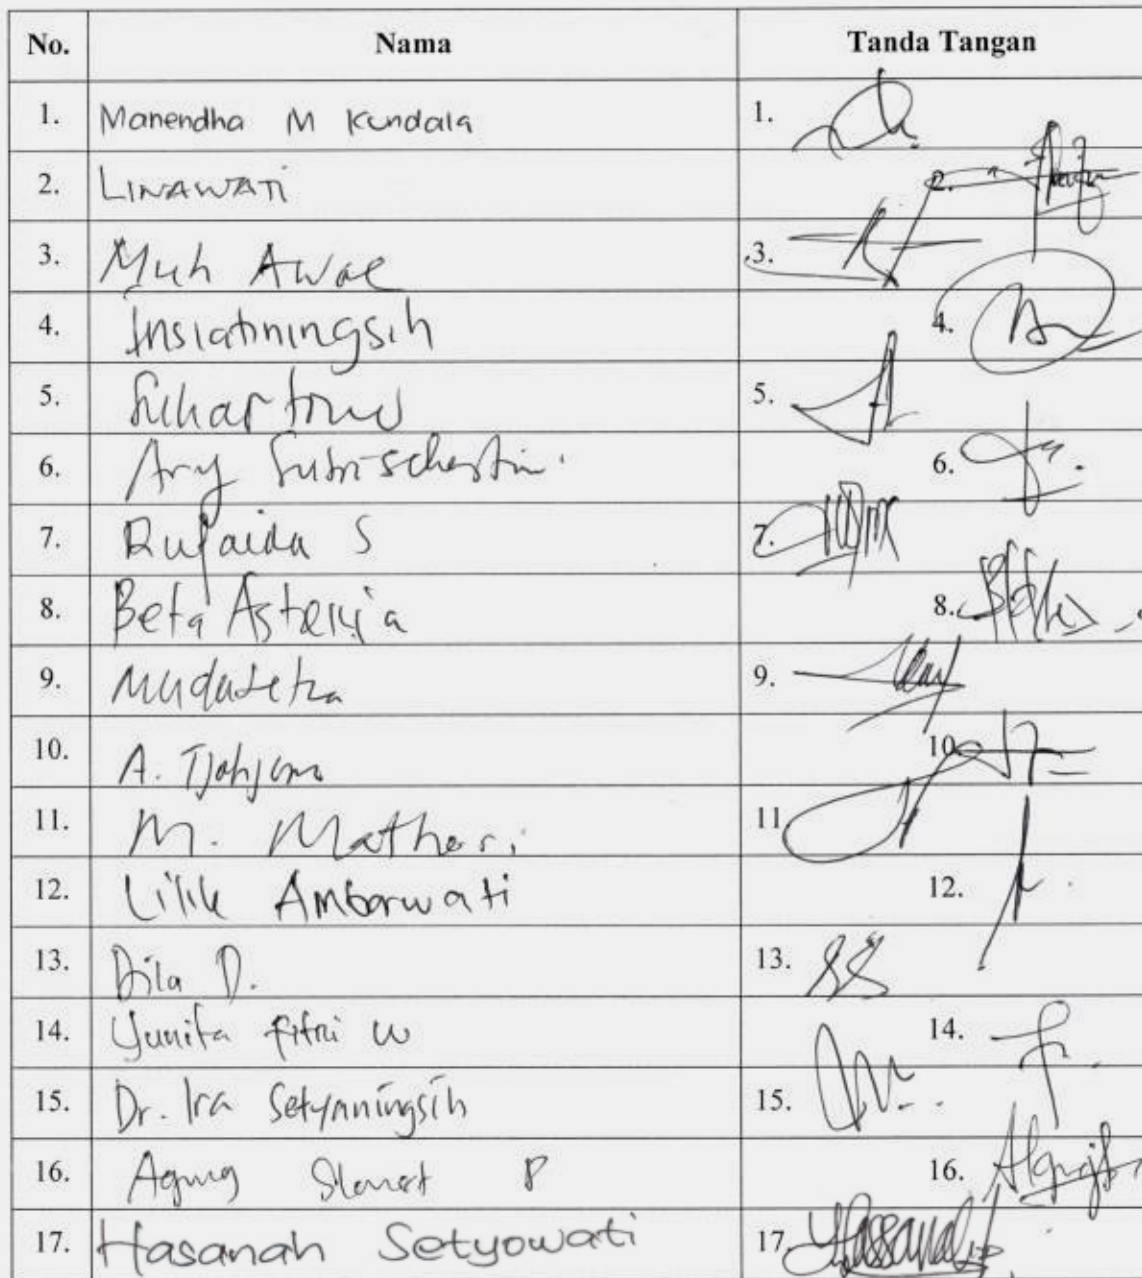 No. Nama Tanda Tangan
1. Manendha M Kundala 1.
2. LINAWATI 2.
3. Muh Awal 3.
4. Insiatiningsih 4.
5. Suhartono 5.
6. Ary 6.
7. Rufaida S 7.
8. Beta Asteria 8.
9. 9.
10. A. Tjahjono 10.
11. M. Mathori 11
12. Lilik Ambarwati 12.
13. Dila D. 13.
14. Yunita Fitri W 14.
15. Dr. Ira Setyaningsih 15.
16. Agung Slamet P 16.
17. Hasanah Setyowati 17.